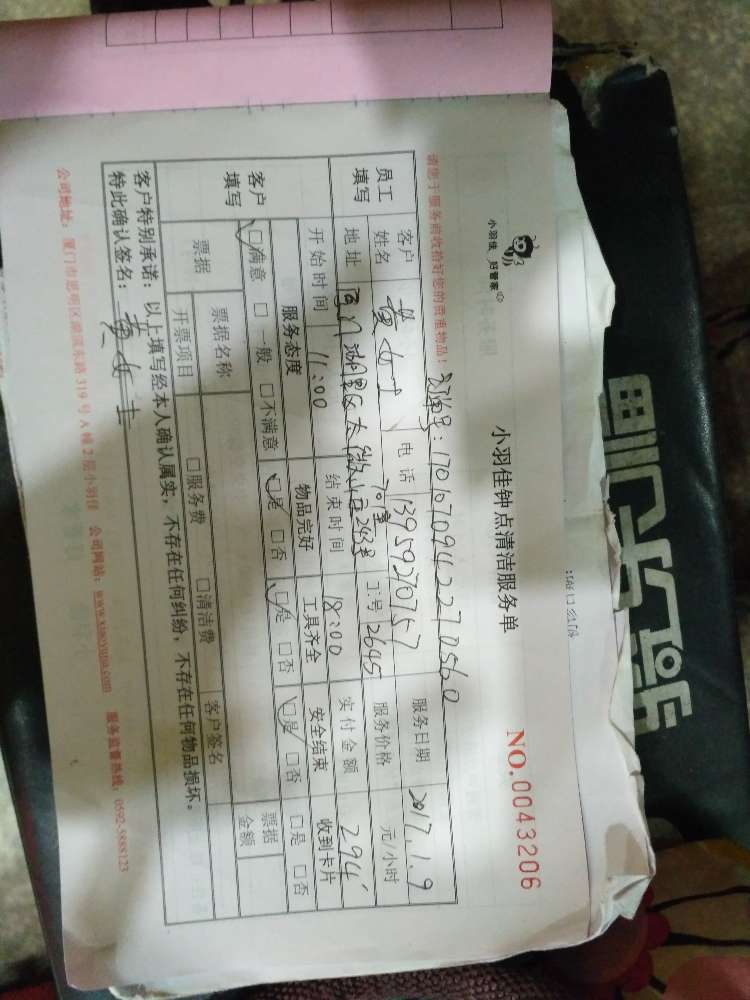 小羽佳 好管家
小羽佳钟点清洁服务单
NO.0043206
请您于服务前收拾好您的贵重物品！
订单号：1701070942270560
员工填写
客户姓名 黄女士 电话 13959270757 服务日期 2017.1.9
地址 厦门湖里区 70室 工号 2645 服务价格 元/小时
开始时间 11:00 结束时间 18:00 实付金额 294
客户填写
服务态度 物品完好 工具齐全 安全结束 收到卡片
□满意 □一般 □不满意 □是 □否 □是 □否 □是 □否 □是 □否
票据 票据名称 客户签名 票据金额
开票项目 □服务费 □清洁费
客户特别承诺：以上填写经本人确认属实，不存在任何纠纷，不存在任何物品损坏。
特此确认签名：黄女士
公司地址：厦门市思明区湖滨东路319号A幢2层小羽佳 公司网站：www.xiaoyujia.com 服务监督热线：0592-5888123